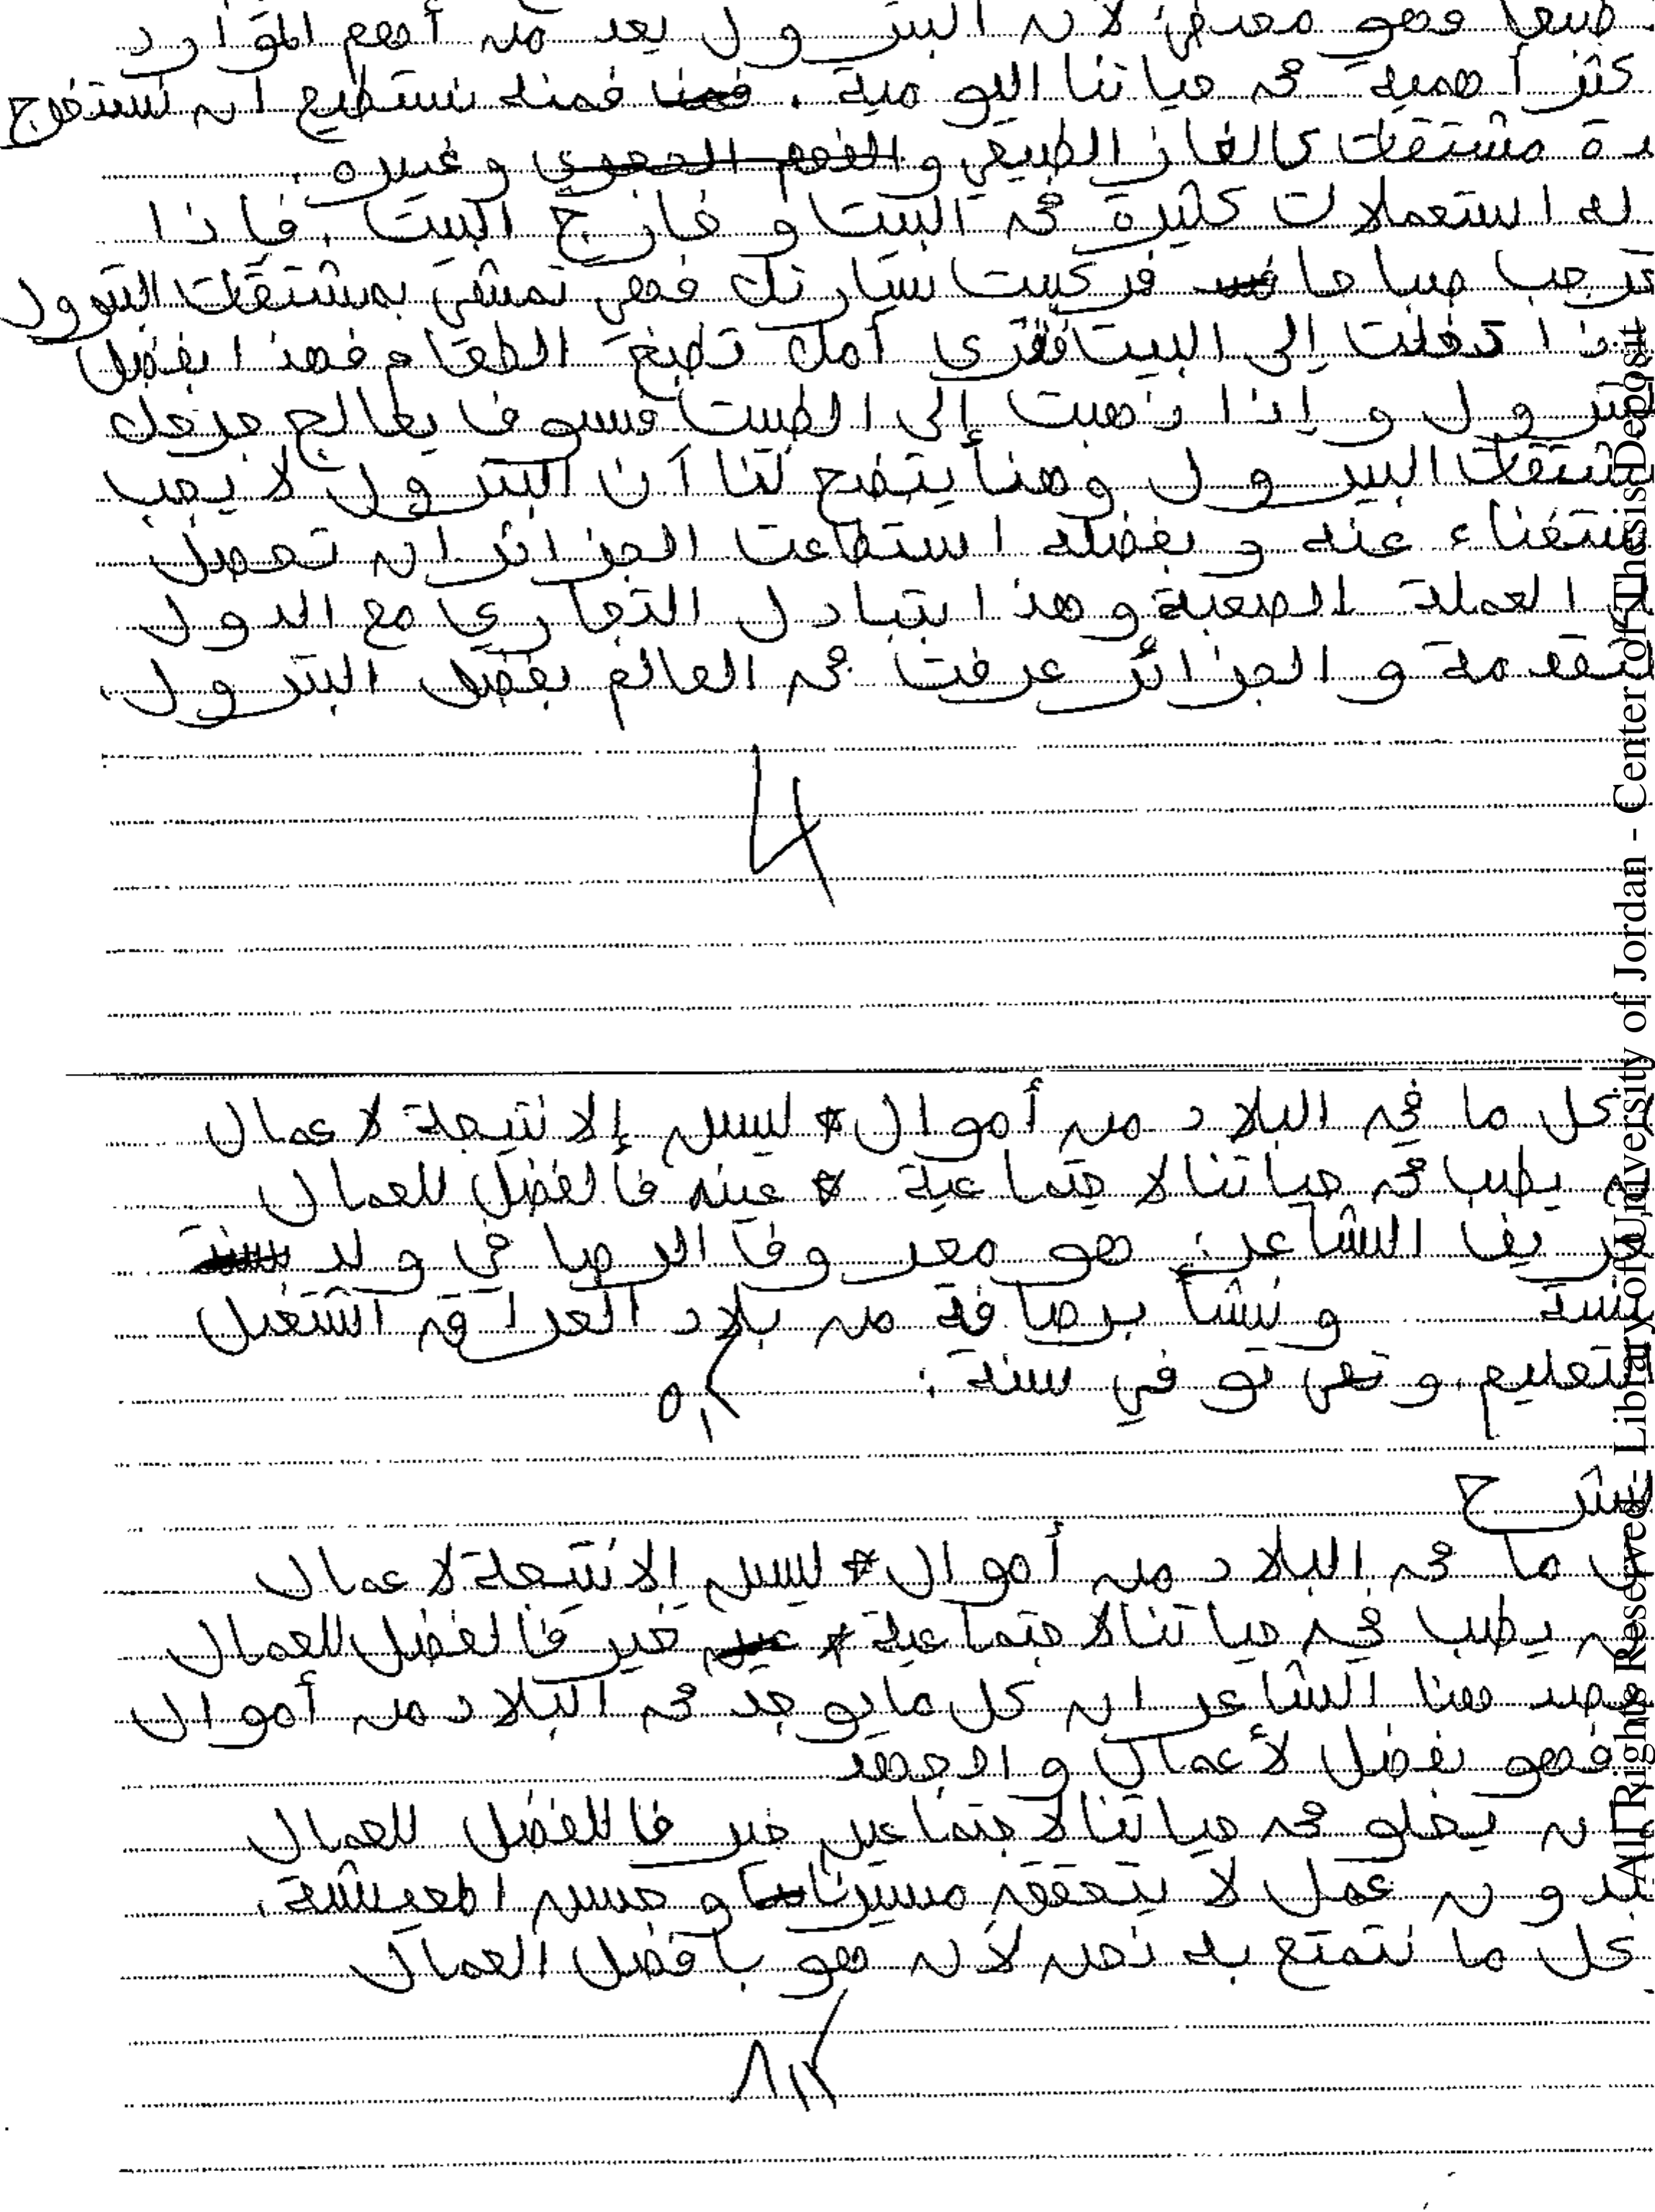 طبعا فهو معدني لأن البترول يعد من أهم الموارد
كثر أهمية في حياتنا اليومية . فمنه نستطيع ان نستخرج
دة مشتقات كالغاز الطبيعي والفحم الحجري وغيره .
له استعمالات كثيرة في البيت و خارج البيت . فإذا
خرجت صباحا فركبت سيارتك فهي تمشي بمشتقات البترول
ذا دخلت إلى البيت فترى أمك تطبخ الطعام فهذا بفضل
لبترول و إذا ذهبت إلى الطبيب فسوف يعالج جرحك
شتقات البترول وهنا يتضح لنا أن البترول لا يجب
ستغناء عنه و بفضله استطاعت الجزائر ان تحصل
العملة الصعبة وهذا بتبادل التجاري مع الدول
لمتقدمة و الجزائر عرفت في العالم بفضل البترول .
4
كل ما في البلاد من أموال * ليس إلا نتيجة لا عمال
يطب في حياتنا لا جتماعية * عينه فالفضل للعمال
عريف الشاعر : هو معروف الرصافي ولد
سنة ونشأ برصافة من بلاد العراق اشتغل
لتعليم و توفي سنة :
لشرح
ل ما في البلاد من أموال * ليس إلا نتيجة لا عمال
ن يطب في حياتنا لا جتماعية * غير فالفضل للعمال
قصد هنا الشاعر ان كل ما يوجد في البلاد من أموال
فهو بفضل لأعمال و الجهد
ن يخلو في حياتنا لا جتماعي خير فاللفضل للعمال
بدون عمل لا يتحقق وحسن المعيشة .
كل ما نتمتع به نحن لأن هو بأفضل العمال
All Rights Reserved - Library of University of Jordan - Center of Thesis Deposit